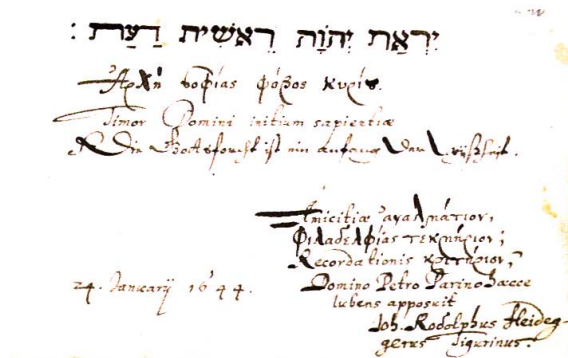 יִרְאַת יְהוָֹה רֵאשִׁית דָּעַת :
Ἀρχὴ σοφίας φόβος κυρίȣ.
Timor Domini initium sapientiæ
Die Gottsforcht ist ein anfang der Wyßheit.
Amicitiæ ἀγαλμάτιον,
Φιλαδελφίας τεκμήριον;
Recordationis κριτήριον,
24. Januarij 1644.
Domino Petro Parino hacce
lubens apposuit
Joh. Rodolphus Heideg-
gerus Tigurinus.